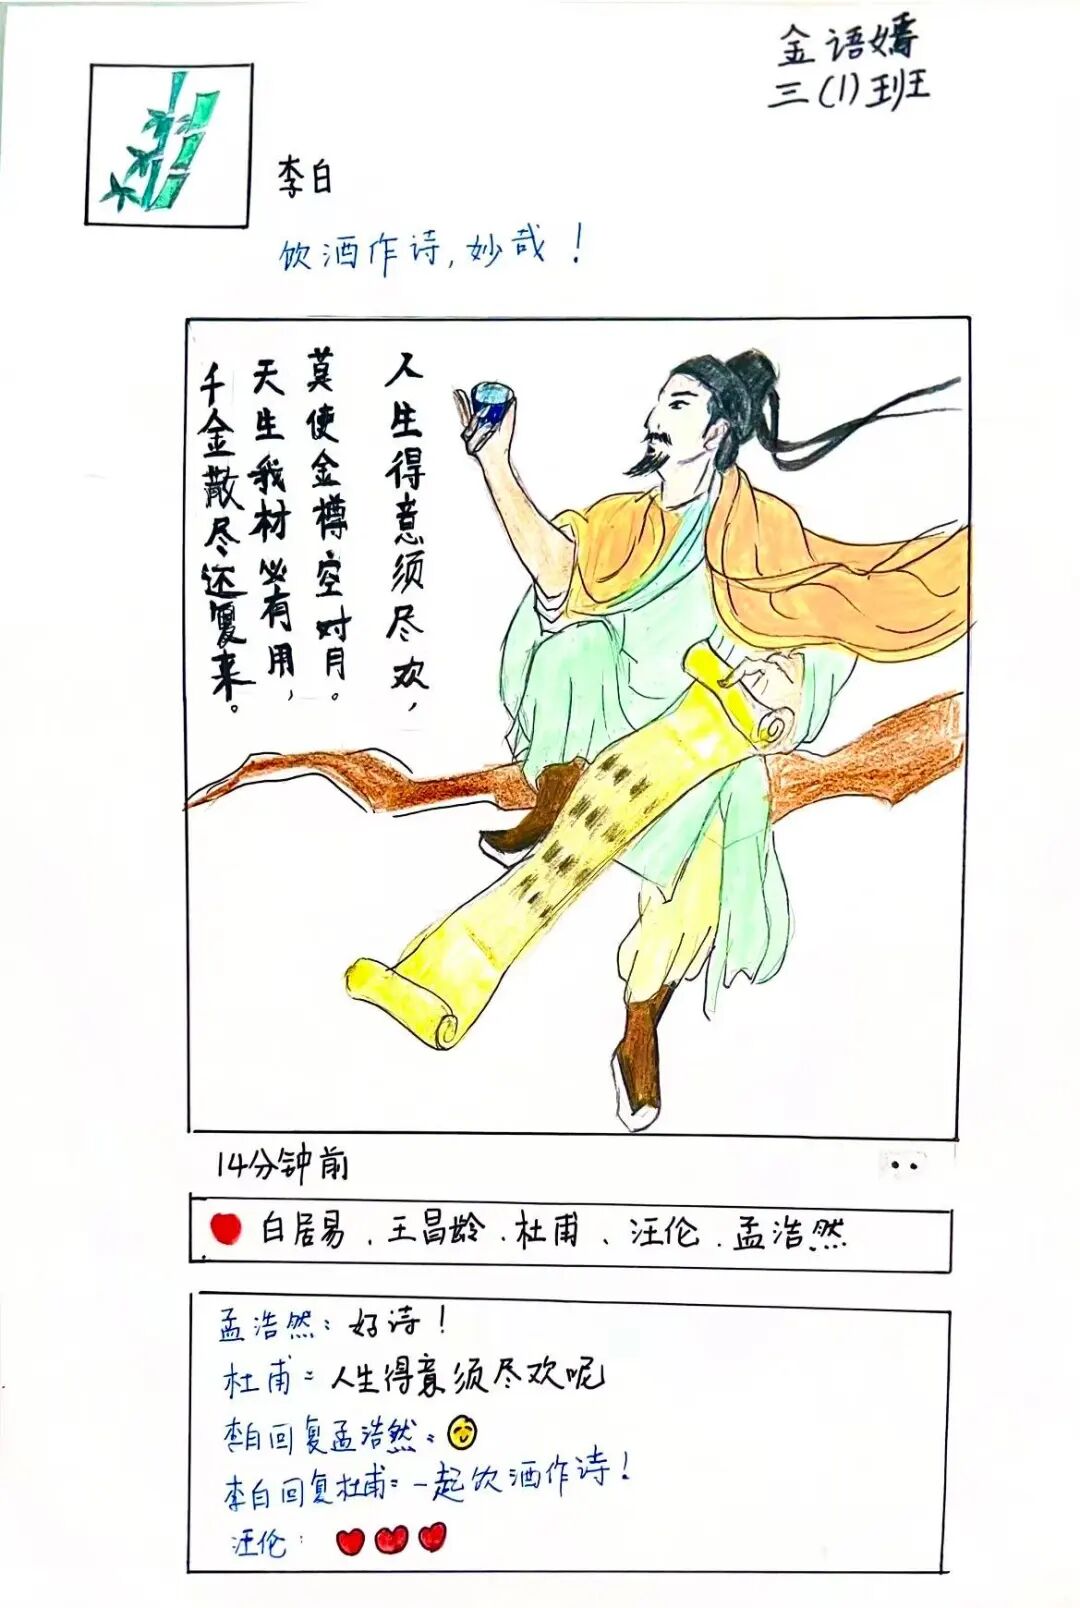 金语嫣
三(1)班
李白
饮酒作诗,妙哉!
人生得意须尽欢,
莫使金樽空对月。
天生我材必有用,
千金散尽还复来。
14分钟前
白居易、王昌龄、杜甫、汪伦、孟浩然
孟浩然:好诗!
杜甫:人生得意须尽欢呢
李白回复孟浩然:
李白回复杜甫:一起饮酒作诗!
汪伦: